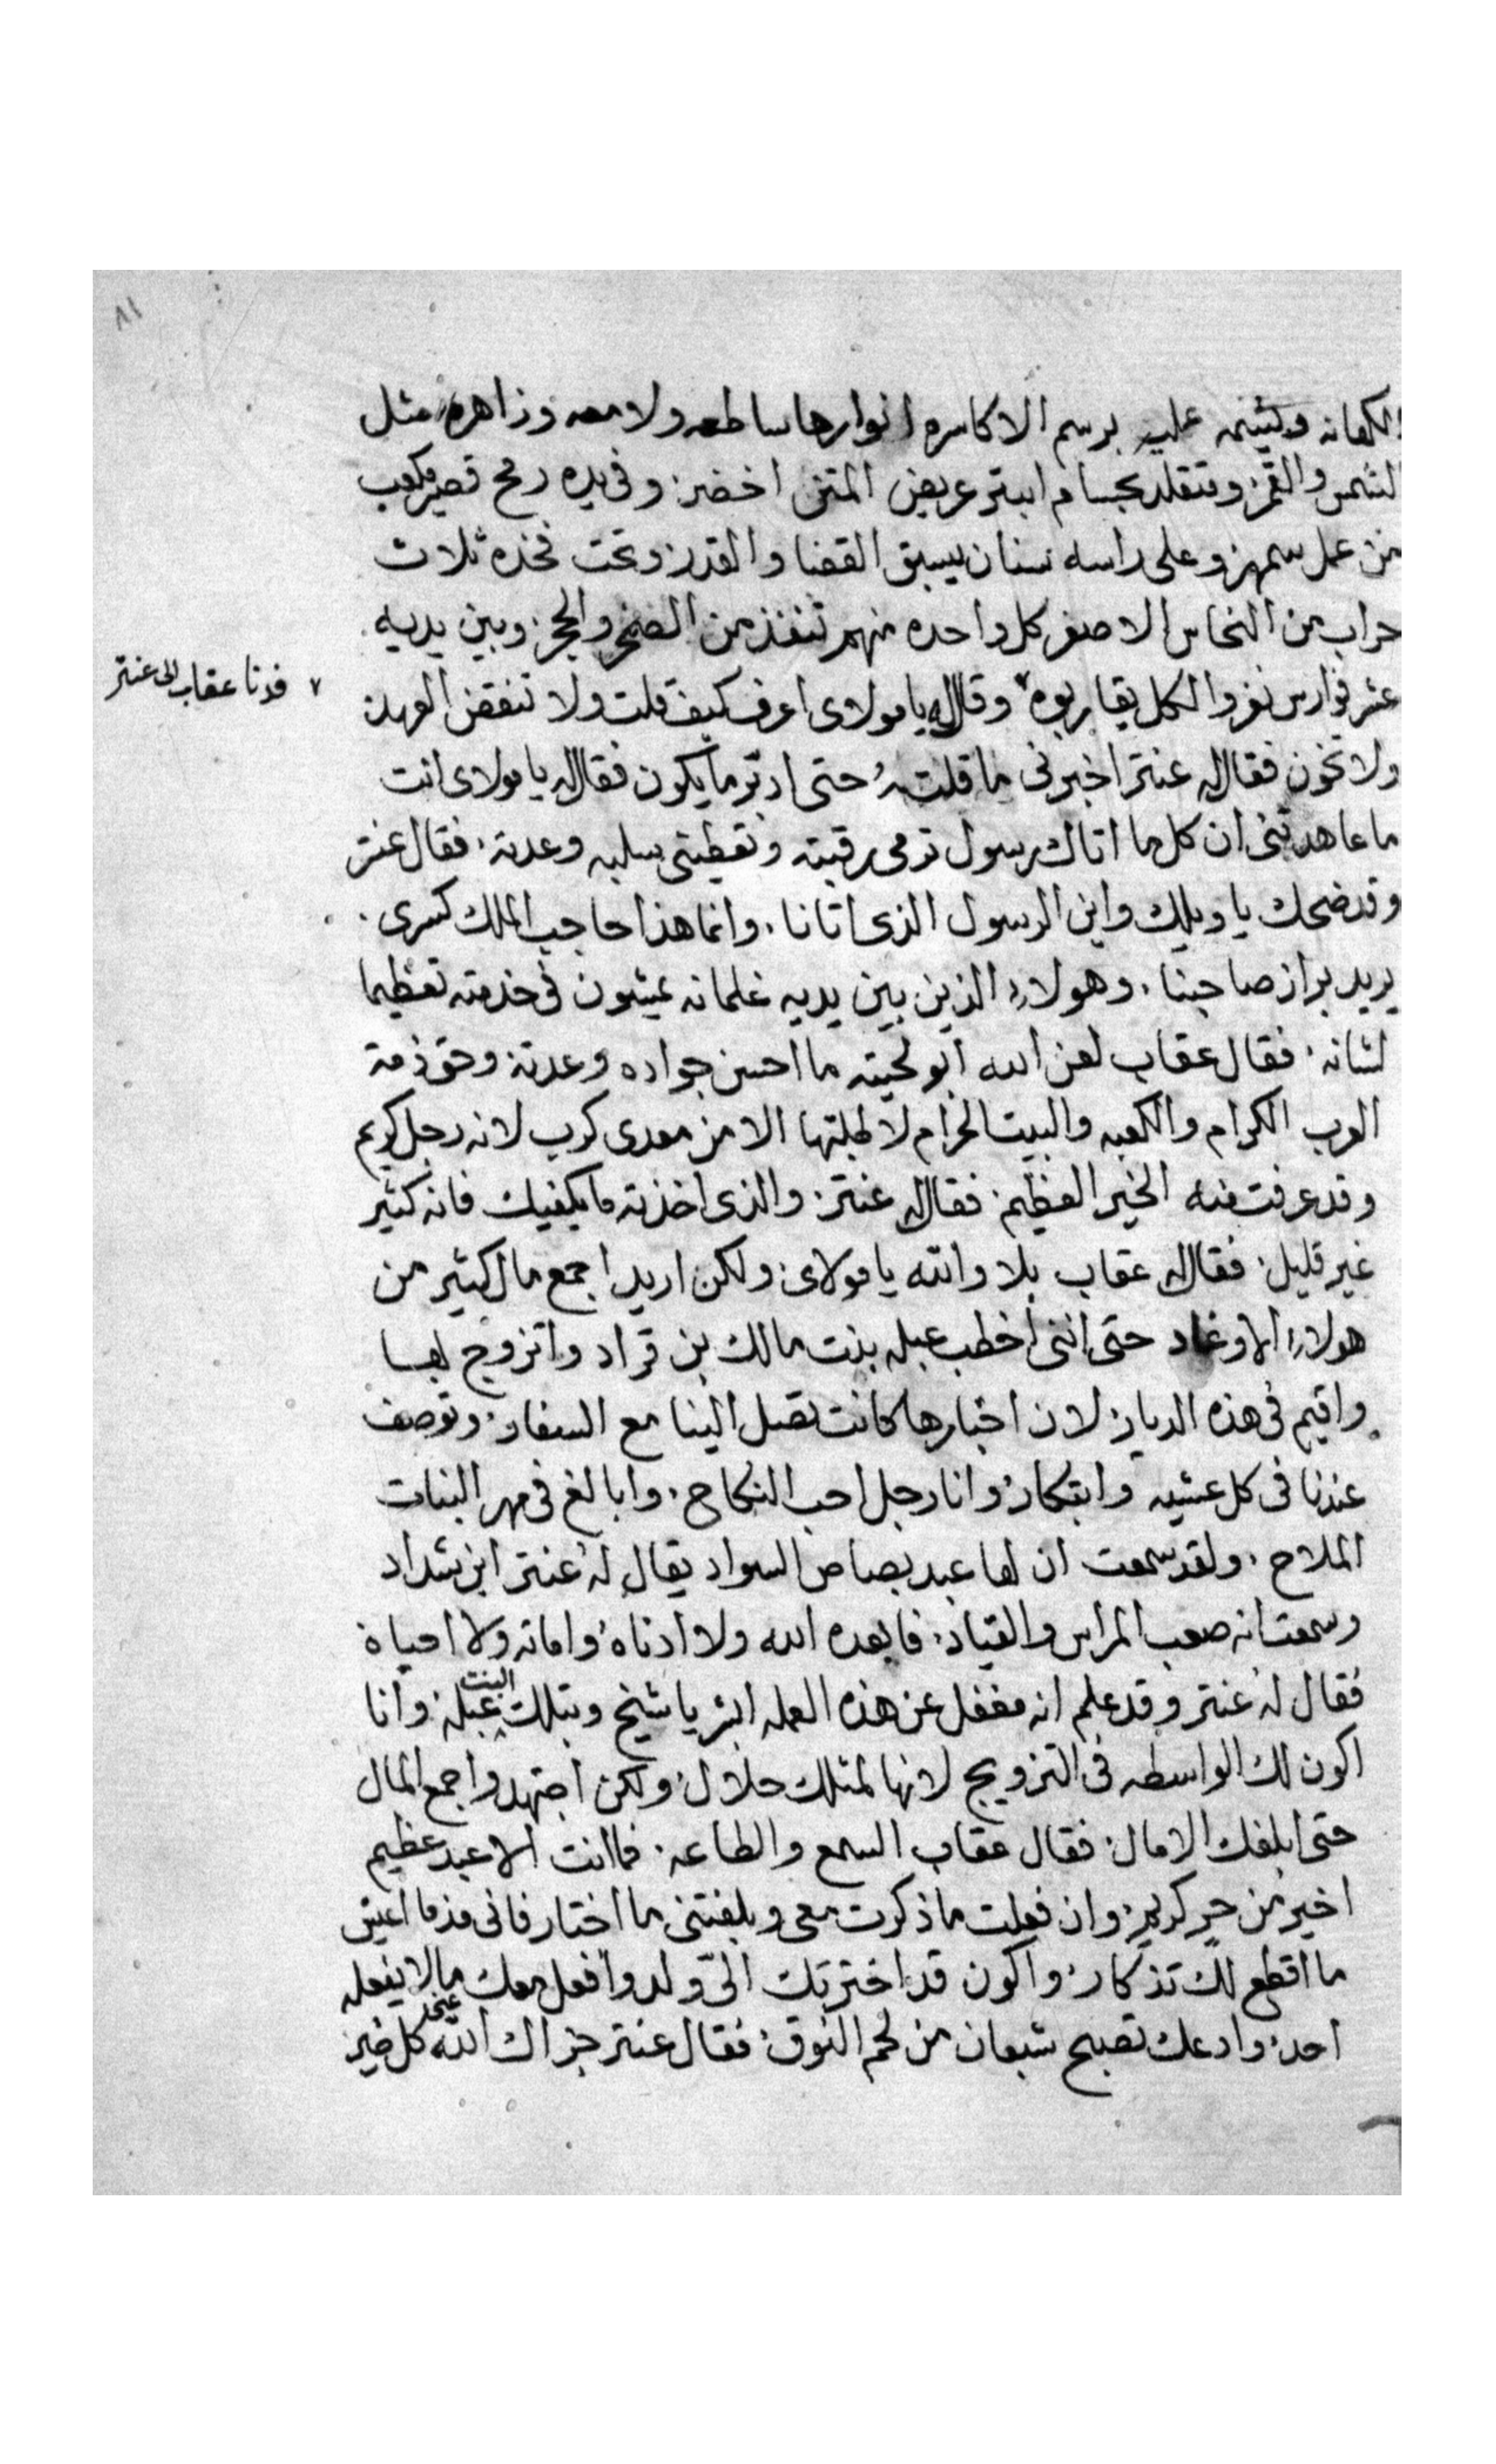 ٨١
الكهانه وليتيمه عليه برسم الاكاسره انوارها ساطعه ولامعه وزاهره مثل
الشمس والقمر ومتقلد بحسام ابتر عريض المتن اخضر وفي يده رمح قصير مكعب
من عمل سمهر وعلى راسه سنان يسبق القضا والقدر وتحت فخذه ثلاث
حراب من النحاس الاصفر كل واحده منهم تنفذ من الصخر والحجر وبين يديه
عشر فوارس نفر والكل يقاربوه ٧ وقال له يا مولاى اعرف كيف قلت ولا تنقض العهد
٧ فدنا عقاب الى عنتر
ولا تخون فقال له عنتر اخبرنى ما قلته حتى ادبر ما يكون فقال له يا مولاى انت
ما عاهدتنى ان كل ما اتاك رسول ترمى رقبته وتعطينى سلبه وعدته فقال عنتر
وقد ضحك يا ويلك واين الرسول الذى اتانا وانما هذا حاجب الملك كسرى
يريد براز صاحبنا وهولاء الذين بين يديه غلمانه يمشون فى خدمته تعظيما
لشانه فقال عقاب لعن الله ابو لحيته ما احسن جواده وعدته وحق ذمة
العرب الكرام والكعبه والبيت الحرام لا طلبتها الا من معدى كرب لانه رجل كريم
وقد عرفت منه الخير العظيم فقال له عنتر والذى اخذته ما يكفيك فانه كثير
غير قليل فقال له عقاب بلا والله يا مولاى ولكن اريد اجمع مال كثير من
هولاء الاوغاد حتى اننى اخطب عبله بنت مالك بن قراد واتزوج بها
واقيم فى هذه الديار لان اخبارها كانت تصل الينا مع السفار وتوصف
عندنا فى كل عشيه وابتكار وانا رجل احب النكاح وابالغ فى مهر البنات
الملاح ولقد سمعت ان لها عبد بصاص السواد يقال له عنتر ابن شداد
وسمعت انه صعب المراس والقياد فابعده الله ولا ادناه واماته ولا احياه
فقال له عنتر وقد علم انه مغفل عن هذه العمله ابشر يا شيخ وبتلك البنت عبله وانا
اكون لك الواسطه فى التزويج لانها لمثلك حلال ولكن اجتهد واجمع المال
حتى ابلغك الامال فقال عقاب السمع والطاعه فما انت الا عبد عظيم
اخير من حر كريم وان فعلت ما ذكرت معى وبلغتنى ما اختار فانى منذ ما اعيش
ما اقطع لك تذكار واكون قد اخترتك الىّ ولد وافعل معك ما لا يفعله
احد وادعك تصبح شبعان من لحم النوق فقال عنتر جزاك الله عنى كل خير